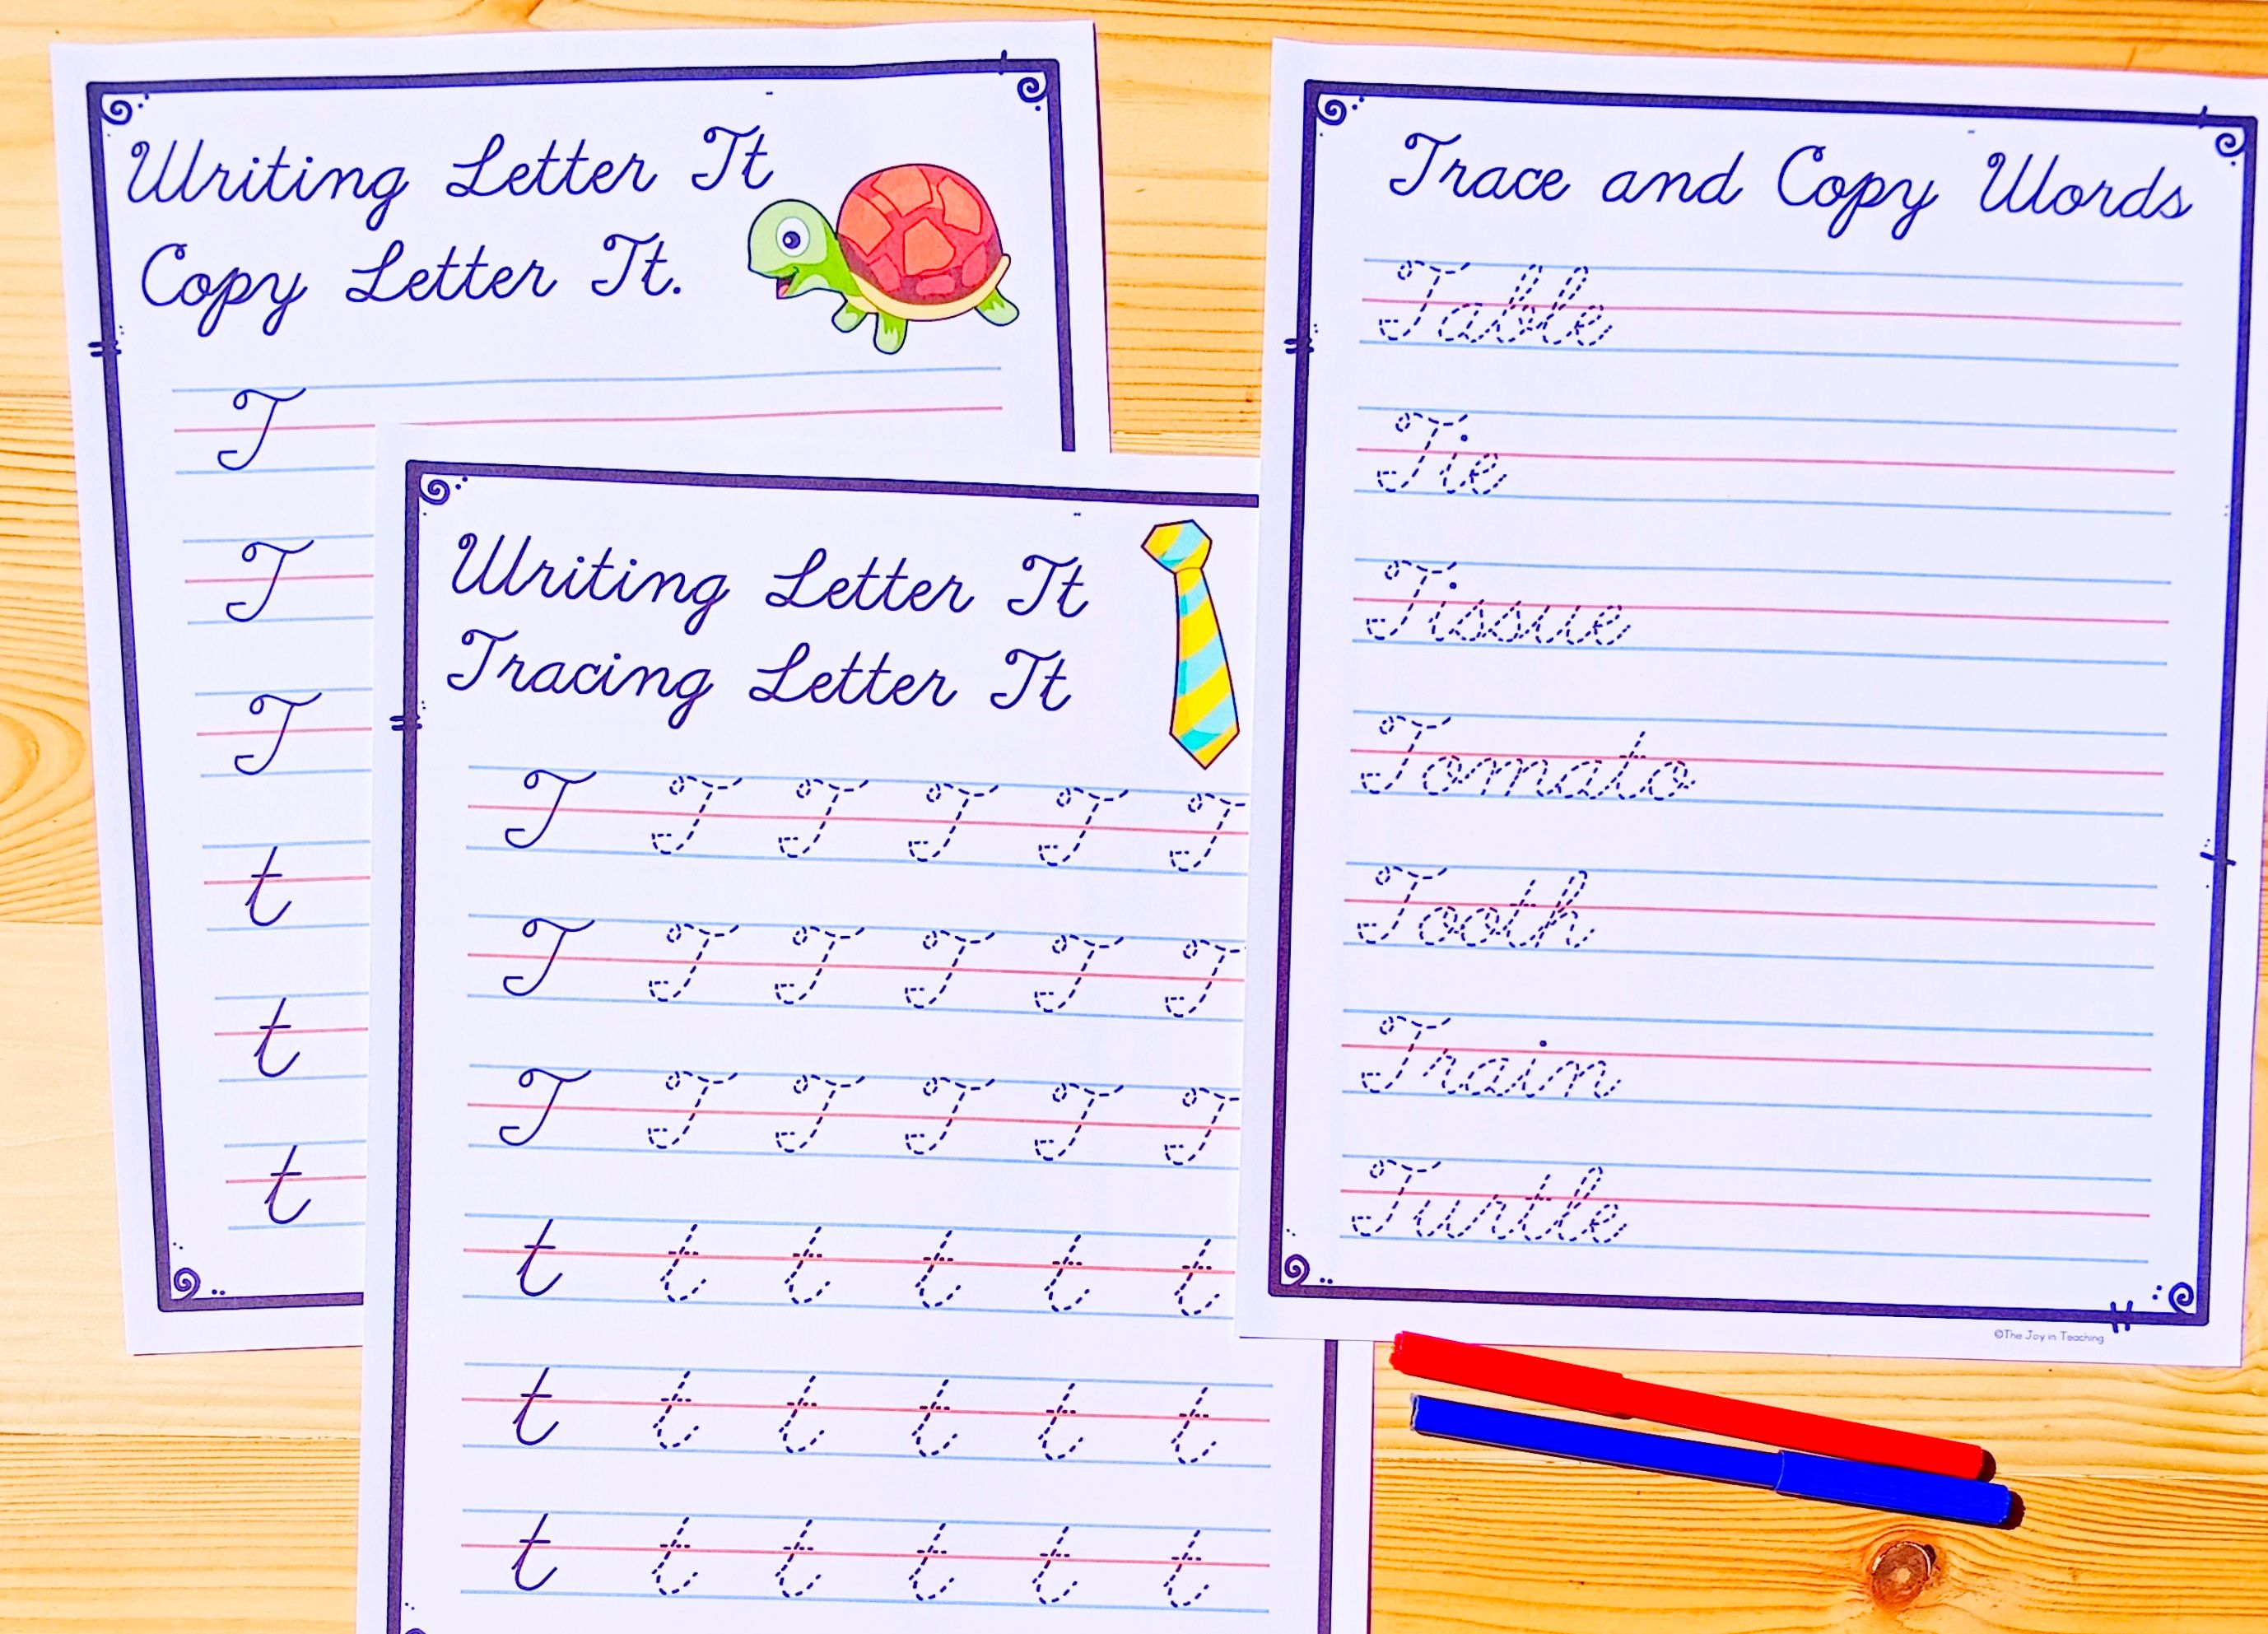 Writing Letter Tt
Copy Letter Tt.
T
T
T
t
t
t
Writing Letter Tt
Tracing Letter Tt
T T T T T T
T T T T T T
T T T T T T
t t t t t t
t t t t t t
t t t t t t
Trace and Copy Words
Table
Tie
Tissue
Tomato
Tooth
Train
Turtle
©The Joy in Teaching